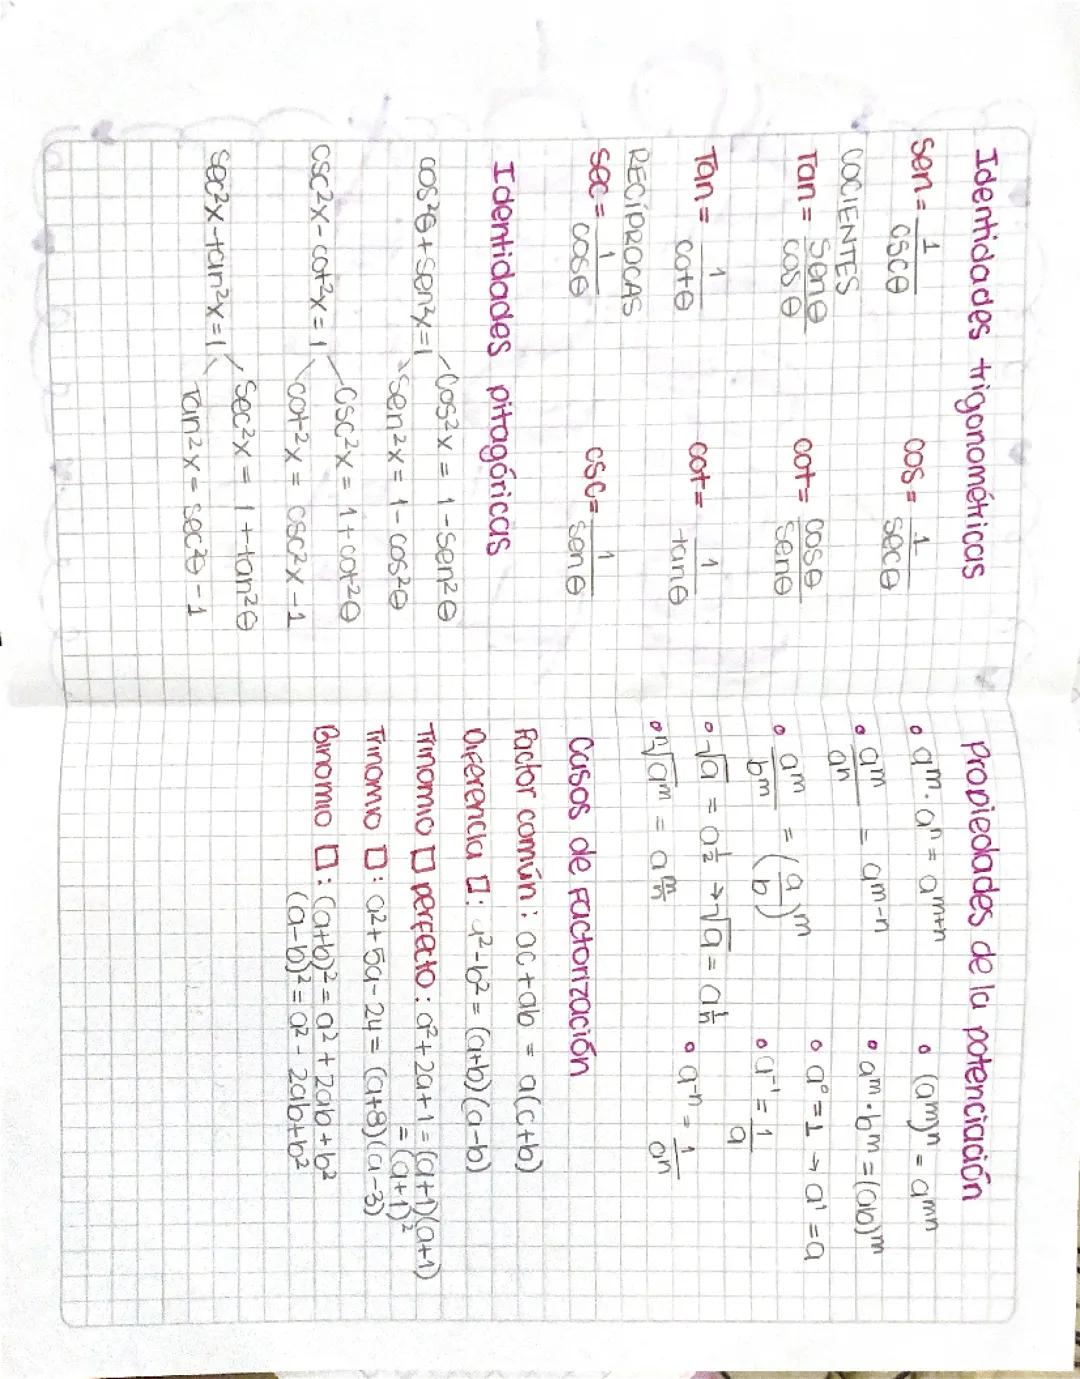 Identidades trigonométricas
Sen = 1/cscθ    cos = 1/secθ
COCIENTES
Tan = senθ/cosθ    cot = cosθ/senθ
Tan = 1/cotθ    cot = 1/tanθ
RECÍPROCAS
sec = 1/cosθ    csc = 1/senθ
Identidades pitagóricas
cos²θ + sen²x = 1
Cos²x = 1 - sen²θ
Sen²x = 1 - cos²θ
csc²x - cot²x = 1
Csc²x = 1 + cot²θ
cot²x = csc²x - 1
sec²x - tan²x = 1
Sec²x = 1 + tan²θ
Tan²x = sec²θ - 1
Propiedades de la potenciación
° a^m · a^n = a^(m+n)    ° (a^m)^n = a^(mn)
° a^m/a^n = a^(m-n)    ° a^m · b^m = (ab)^m
° a^m/b^m = (a/b)^m    ° a° = 1 → a¹ = a
° √a = a^(1/2) → ⁿ√a = a^(1/n)    ° a⁻¹ = 1/a
° ⁿ√a^m = a^(m/n)    ° a^(-n) = 1/a^n
Casos de Factorización
Factor común: ac + ab = a(c+b)
Diferencia □: a² - b² = (a+b)(a-b)
Trinomio □ perfecto: a² + 2a + 1 = (a+1)(a+1)
= (a+1)²
Trinomio □: a² + 5a - 24 = (a+8)(a-3)
Binomio □: (a+b)² = a² + 2ab + b²
(a-b)² = a² - 2ab + b²